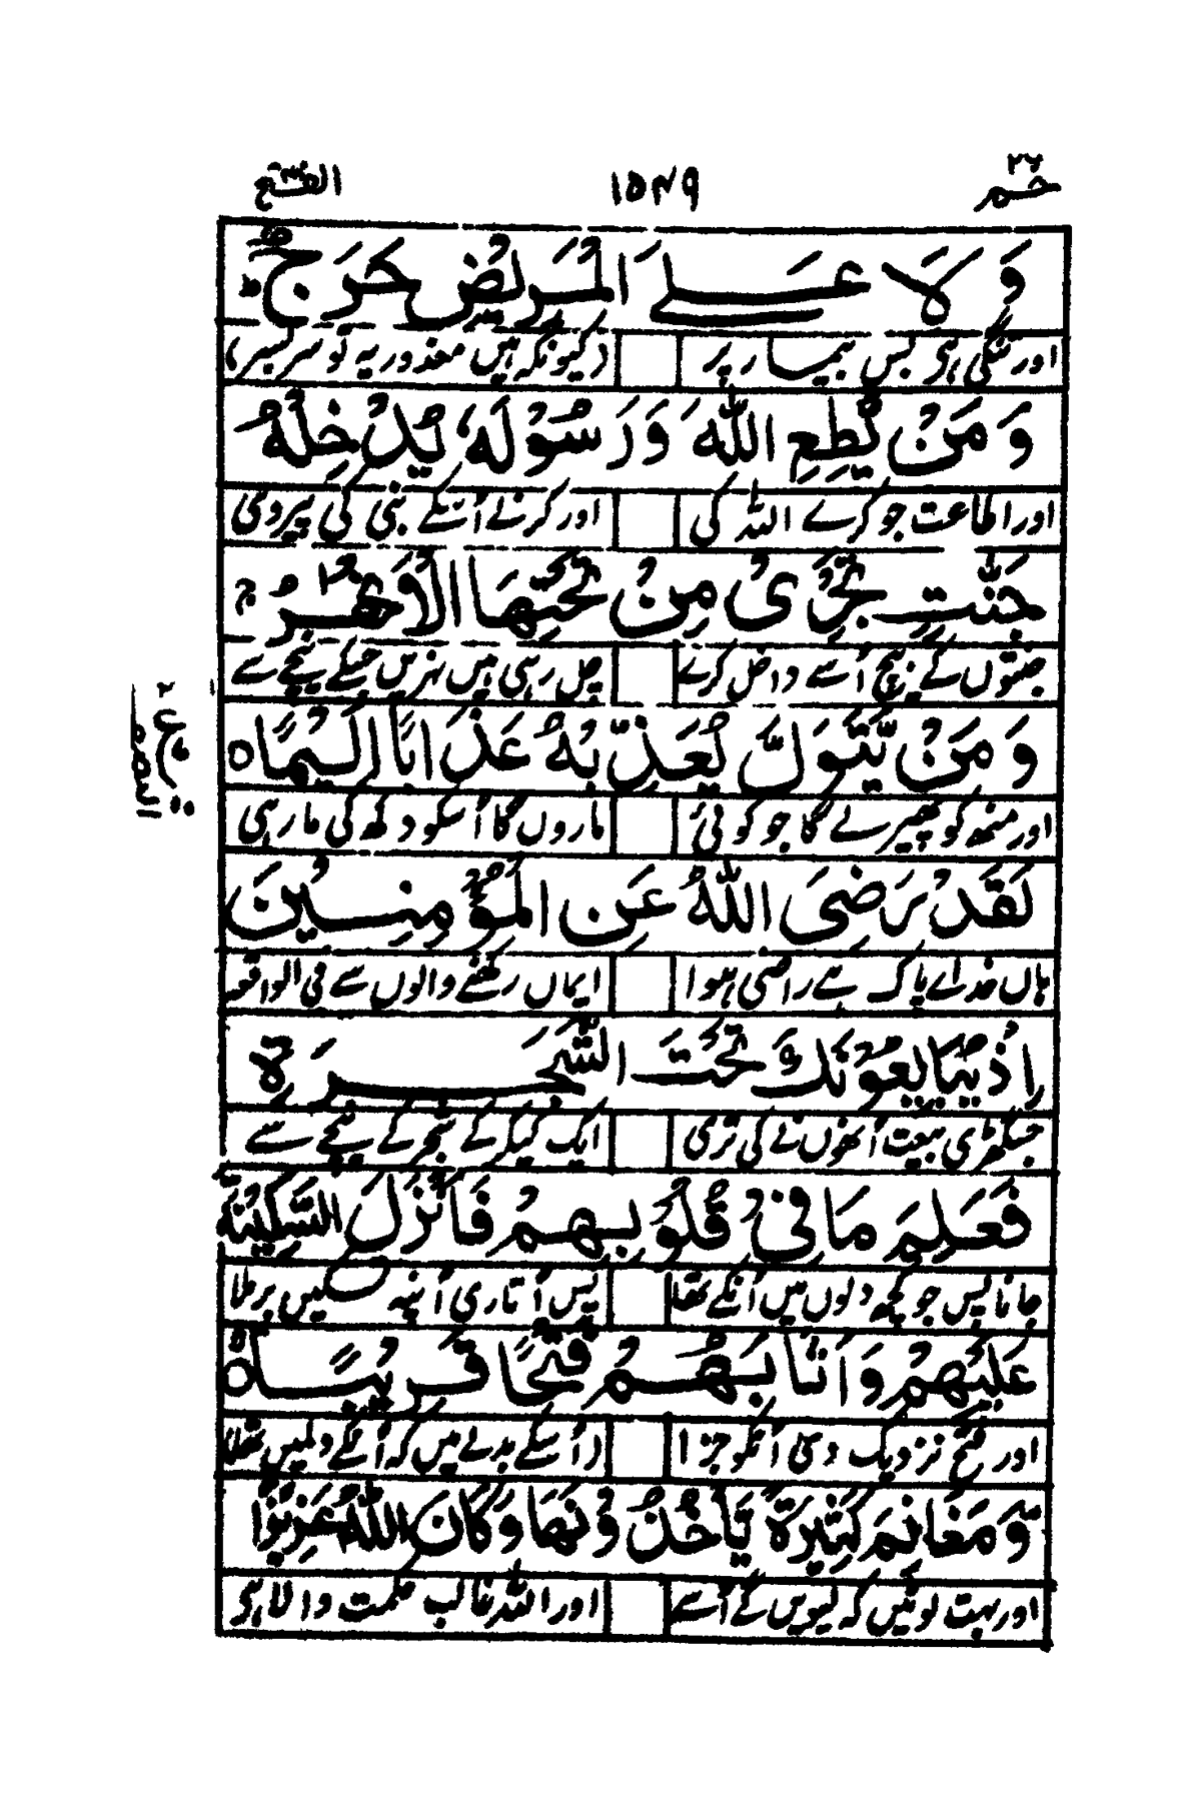 حٰمٓ ٢٦ ١٥٤٩ الفتح
وَلَا عَلَى الْمَرِيْضِ حَرَجٌ ؕ
اور تنگی ہی بس بیمار پر (کیونکہ ہیں معذور یہ تو سر بسر)
وَمَنْ يُّطِعِ اللّٰهَ وَرَسُوْلَهٗ يُدْخِلْهُ
اور اطاعت جو کرے اللہ کی اور کرنے اُسکے نبی کی پیروی
جَنّٰتٍ تَجْرِيْ مِنْ تَحْتِهَا الْاَنْهٰرُ ۚ
جنتوں کے بیچ اُسے داخل کرے چل رہی ہیں نہریں جسکے نیچے سے
وَمَنْ يَّتَوَلَّ يُعَذِّبْهُ عَذَابًا اَلِيْمًا ۝
اور منھ کو پھیر لے گا جو کوئی ماروں گا اُسکو دکھ کی مار ہی
لَقَدْ رَضِيَ اللّٰهُ عَنِ الْمُؤْمِنِيْنَ
ہاں خدائے پاک ہے راضی ہوا ایماں رکھنے والوں سے فی الواقعہ
اِذْ يُبَايِعُوْنَكَ تَحْتَ الشَّجَرَةِ
جسگھڑی بیعت اُنھوں نے کی تری ایک کیکر کے شجر کے نیچے سے
فَعَلِمَ مَا فِيْ قُلُوْبِهِمْ فَاَنْزَلَ السَّكِيْنَةَ
جانا پس جو کچھ دلوں میں اُنکے تھا پس اُتاری اُنپہ تسکیں برملا
عَلَيْهِمْ وَاَثَابَهُمْ فَتْحًا قَرِيْبًا ۝
اور فتح نزدیک دی اُنکو جزا (اُسکے بدلے میں کہ اُنکے دلمیں تھا)
وَّمَغَانِمَ كَثِيْرَةً يَّاْخُذُوْنَهَا وَكَانَ اللّٰهُ عَزِيْزًا
اور بہت لوٹیں کہ لیویں گے اُسے اور اللہ غالب حکمت والا ہی